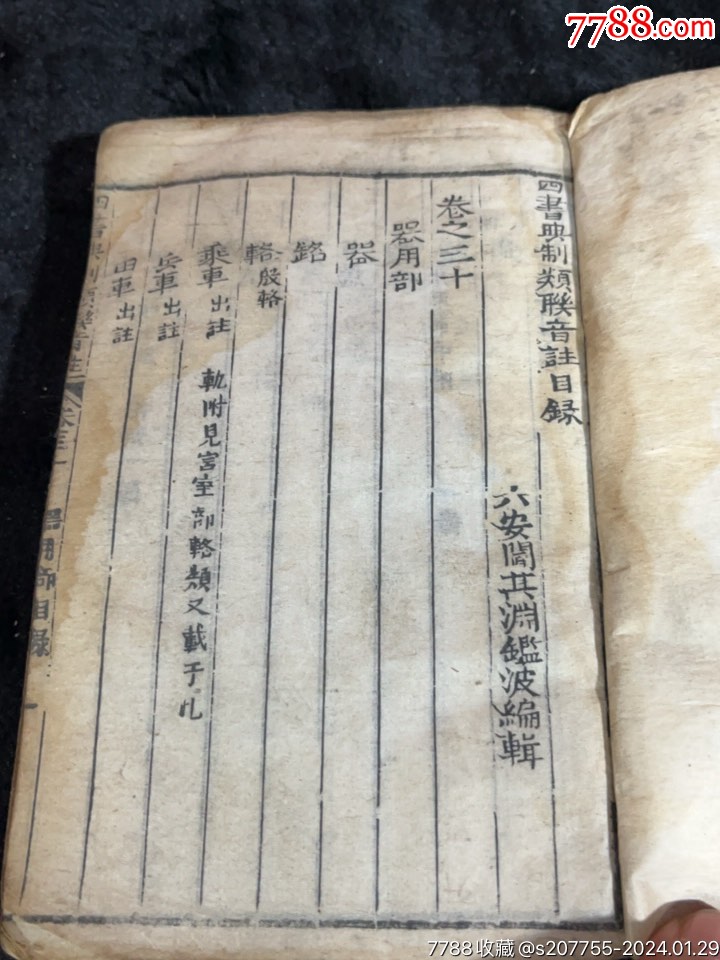 7788.com
四書典制類聯音註目録
六安閻其淵鑑波編輯
卷之三十
器用部
器
銘
輅 殷輅
乘車 出註 軌附見宮室部輅類又載于此
兵車 出註
田車 出註
四書典制類聯音註
卷三十
器用部目録
一
7788收藏@s207755-2024.01.29